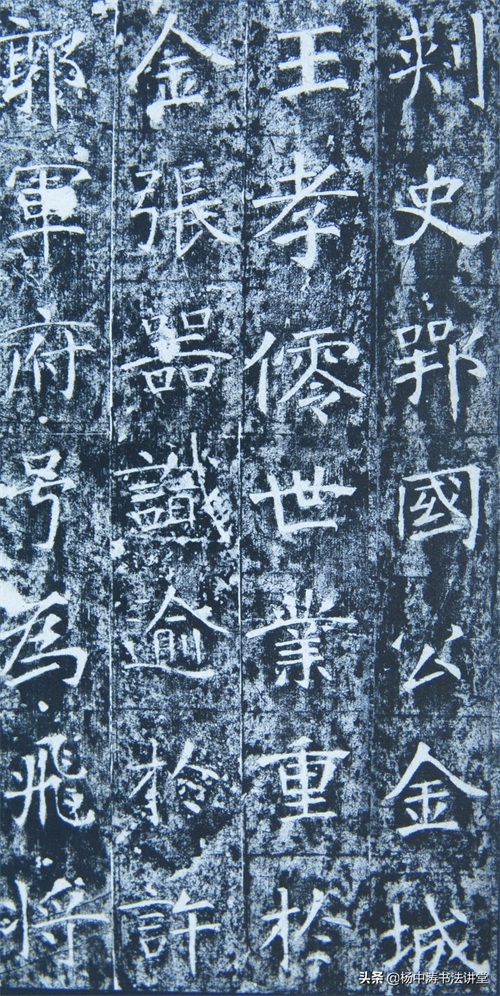 刾史鄂國公金城
王孝僊世業重扵
金張器識逾扵許
郭軍府号為飛將
头条 @杨中涛书法讲堂